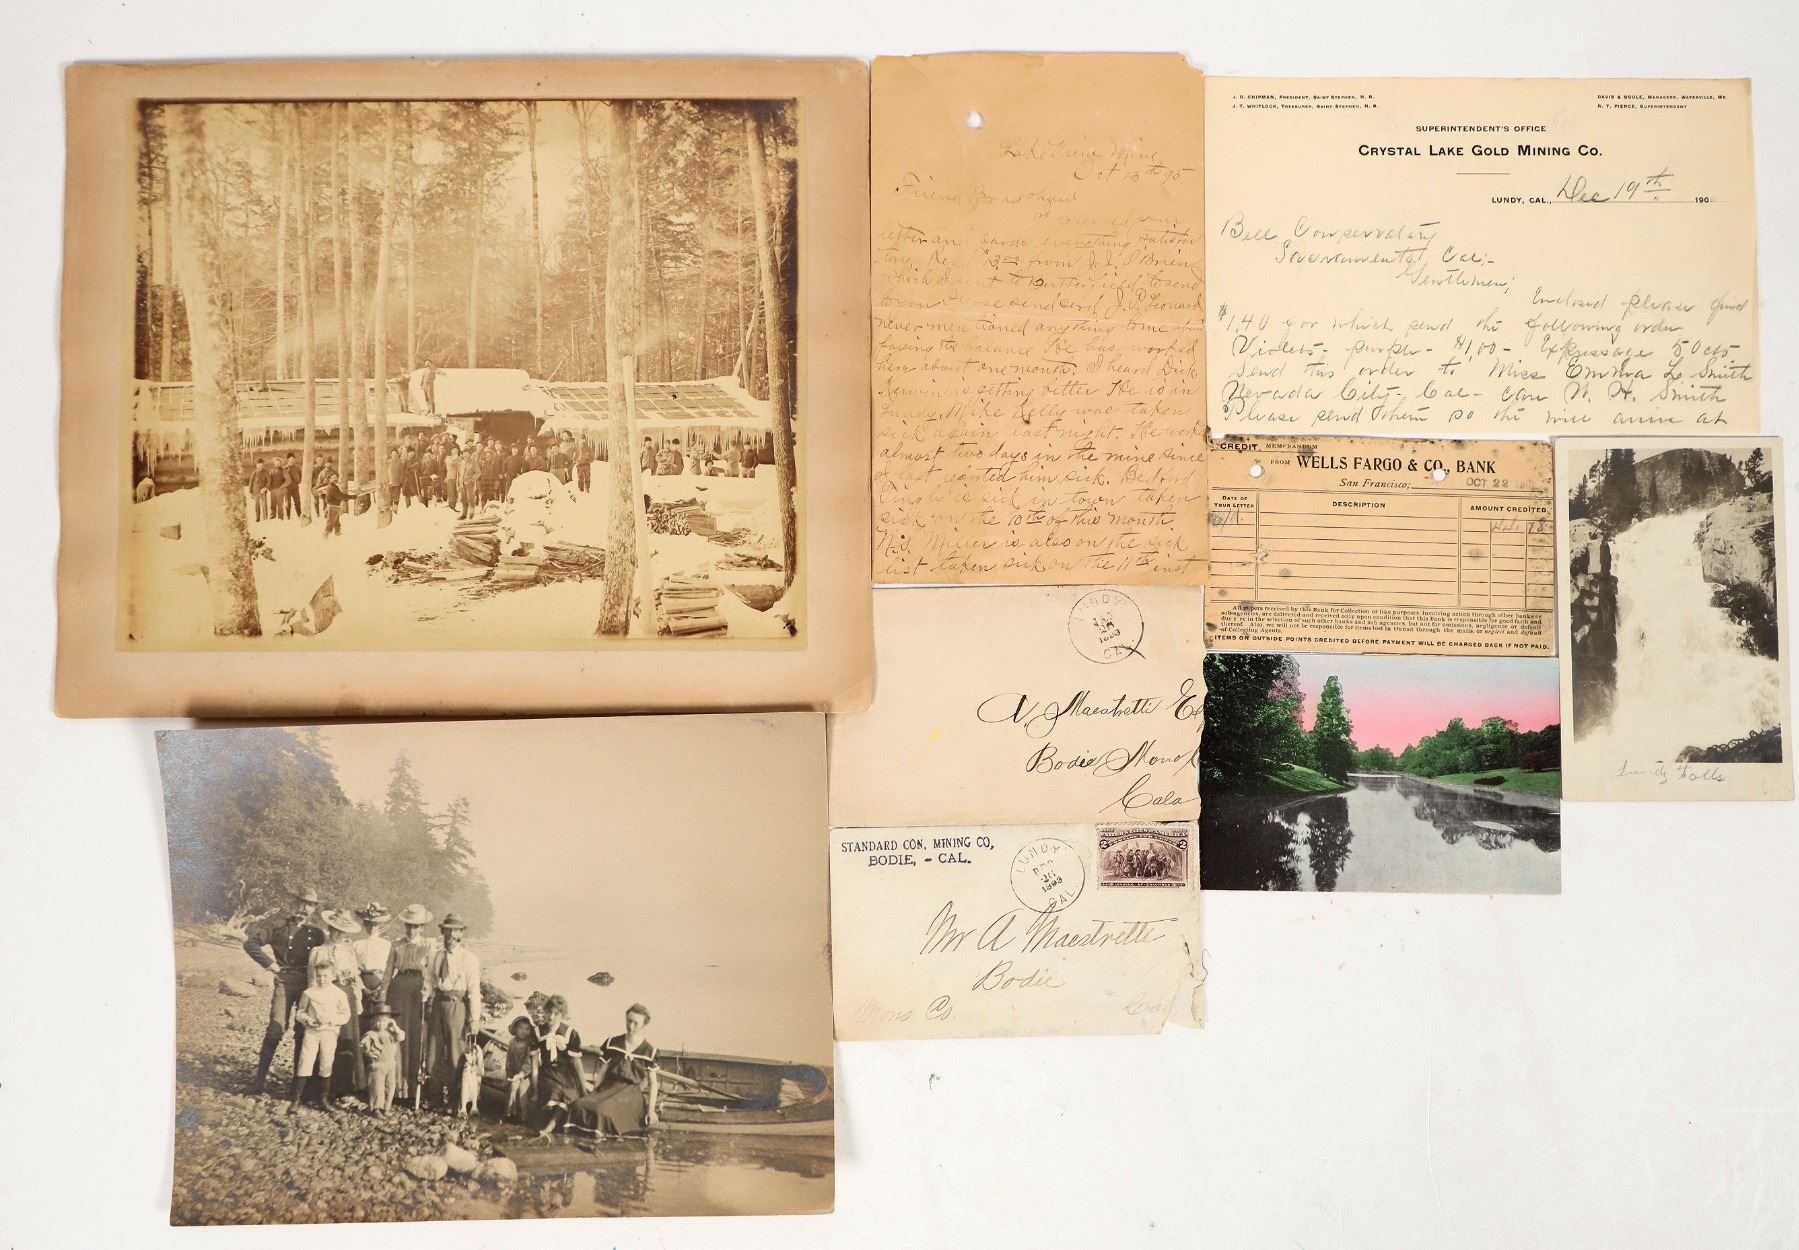 Lake View Mine
Oct 13th 95
Friend Bradshaw
Received your
letter and cards everything satisfac
tory. Rec'd $3.00 from J.J. O'Brien
which I sent to Butterfield to send
to you Please send card, J.P. Leonard
never mentioned anything to me about
paying the balance He has worked
here about one month. I heard Dick
is getting better He is in
Lundy. Mike Kelly was taken
sick again last night. He work
almost two days in the mine since
I last reported him sick.
is sick in town taken
sick on the 10th of this month.
N.J. is also on the sick
list taken sick on the 11th inst
J. D. CHIPMAN, PRESIDENT, SAINT STEPHEN, N. B.
J. T. WHITLOCK, TREASURER, SAINT STEPHEN, N. B.
DAVIS & SOULE, MANAGERS, WATERVILLE, ME.
R. T. PIERCE, SUPERINTENDENT
SUPERINTENDENT'S OFFICE
CRYSTAL LAKE GOLD MINING CO.
LUNDY, CAL., Dec 19th 190
Bell Conservatory
Sacramento, Cal;-
Gentlemen;
Inclosed please find
$1.40 for which send the following order
Violets - purple - $1.00 - Expressage 50cts
Send this order to Miss Emma L. Smith
Nevada City - Cal - care W. H. Smith
Please send them so the will arrive at
CREDIT MEMORANDUM
FROM WELLS FARGO & CO., BANK
San Francisco, OCT 22 190
DATE OF YOUR LETTER
DESCRIPTION
AMOUNT CREDITED
All papers received by this Bank for Collection or like purposes, involving action through other banks or
sub-agencies, are delivered and received only upon condition that this Bank is responsible for good faith and
due care in the selection of such other banks and sub agencies, but not for omissions, negligence or default
thereof. Also, we will not be responsible for items lost in transit through the mails, or neglect and default
of Collecting Agents.
ITEMS ON OUTSIDE POINTS CREDITED BEFORE PAYMENT WILL BE CHARGED BACK IF NOT PAID.
Lundy Falls
LUNDY
26
1893
CAL.
A. Maestretti Esq
Bodie Mono Co
Cala
STANDARD CON. MINING CO,
BODIE, - CAL.
LUNDY
DEC
26
1893
CAL.
2 2
Mr A Maestretti
Bodie
Mono Co. Cal